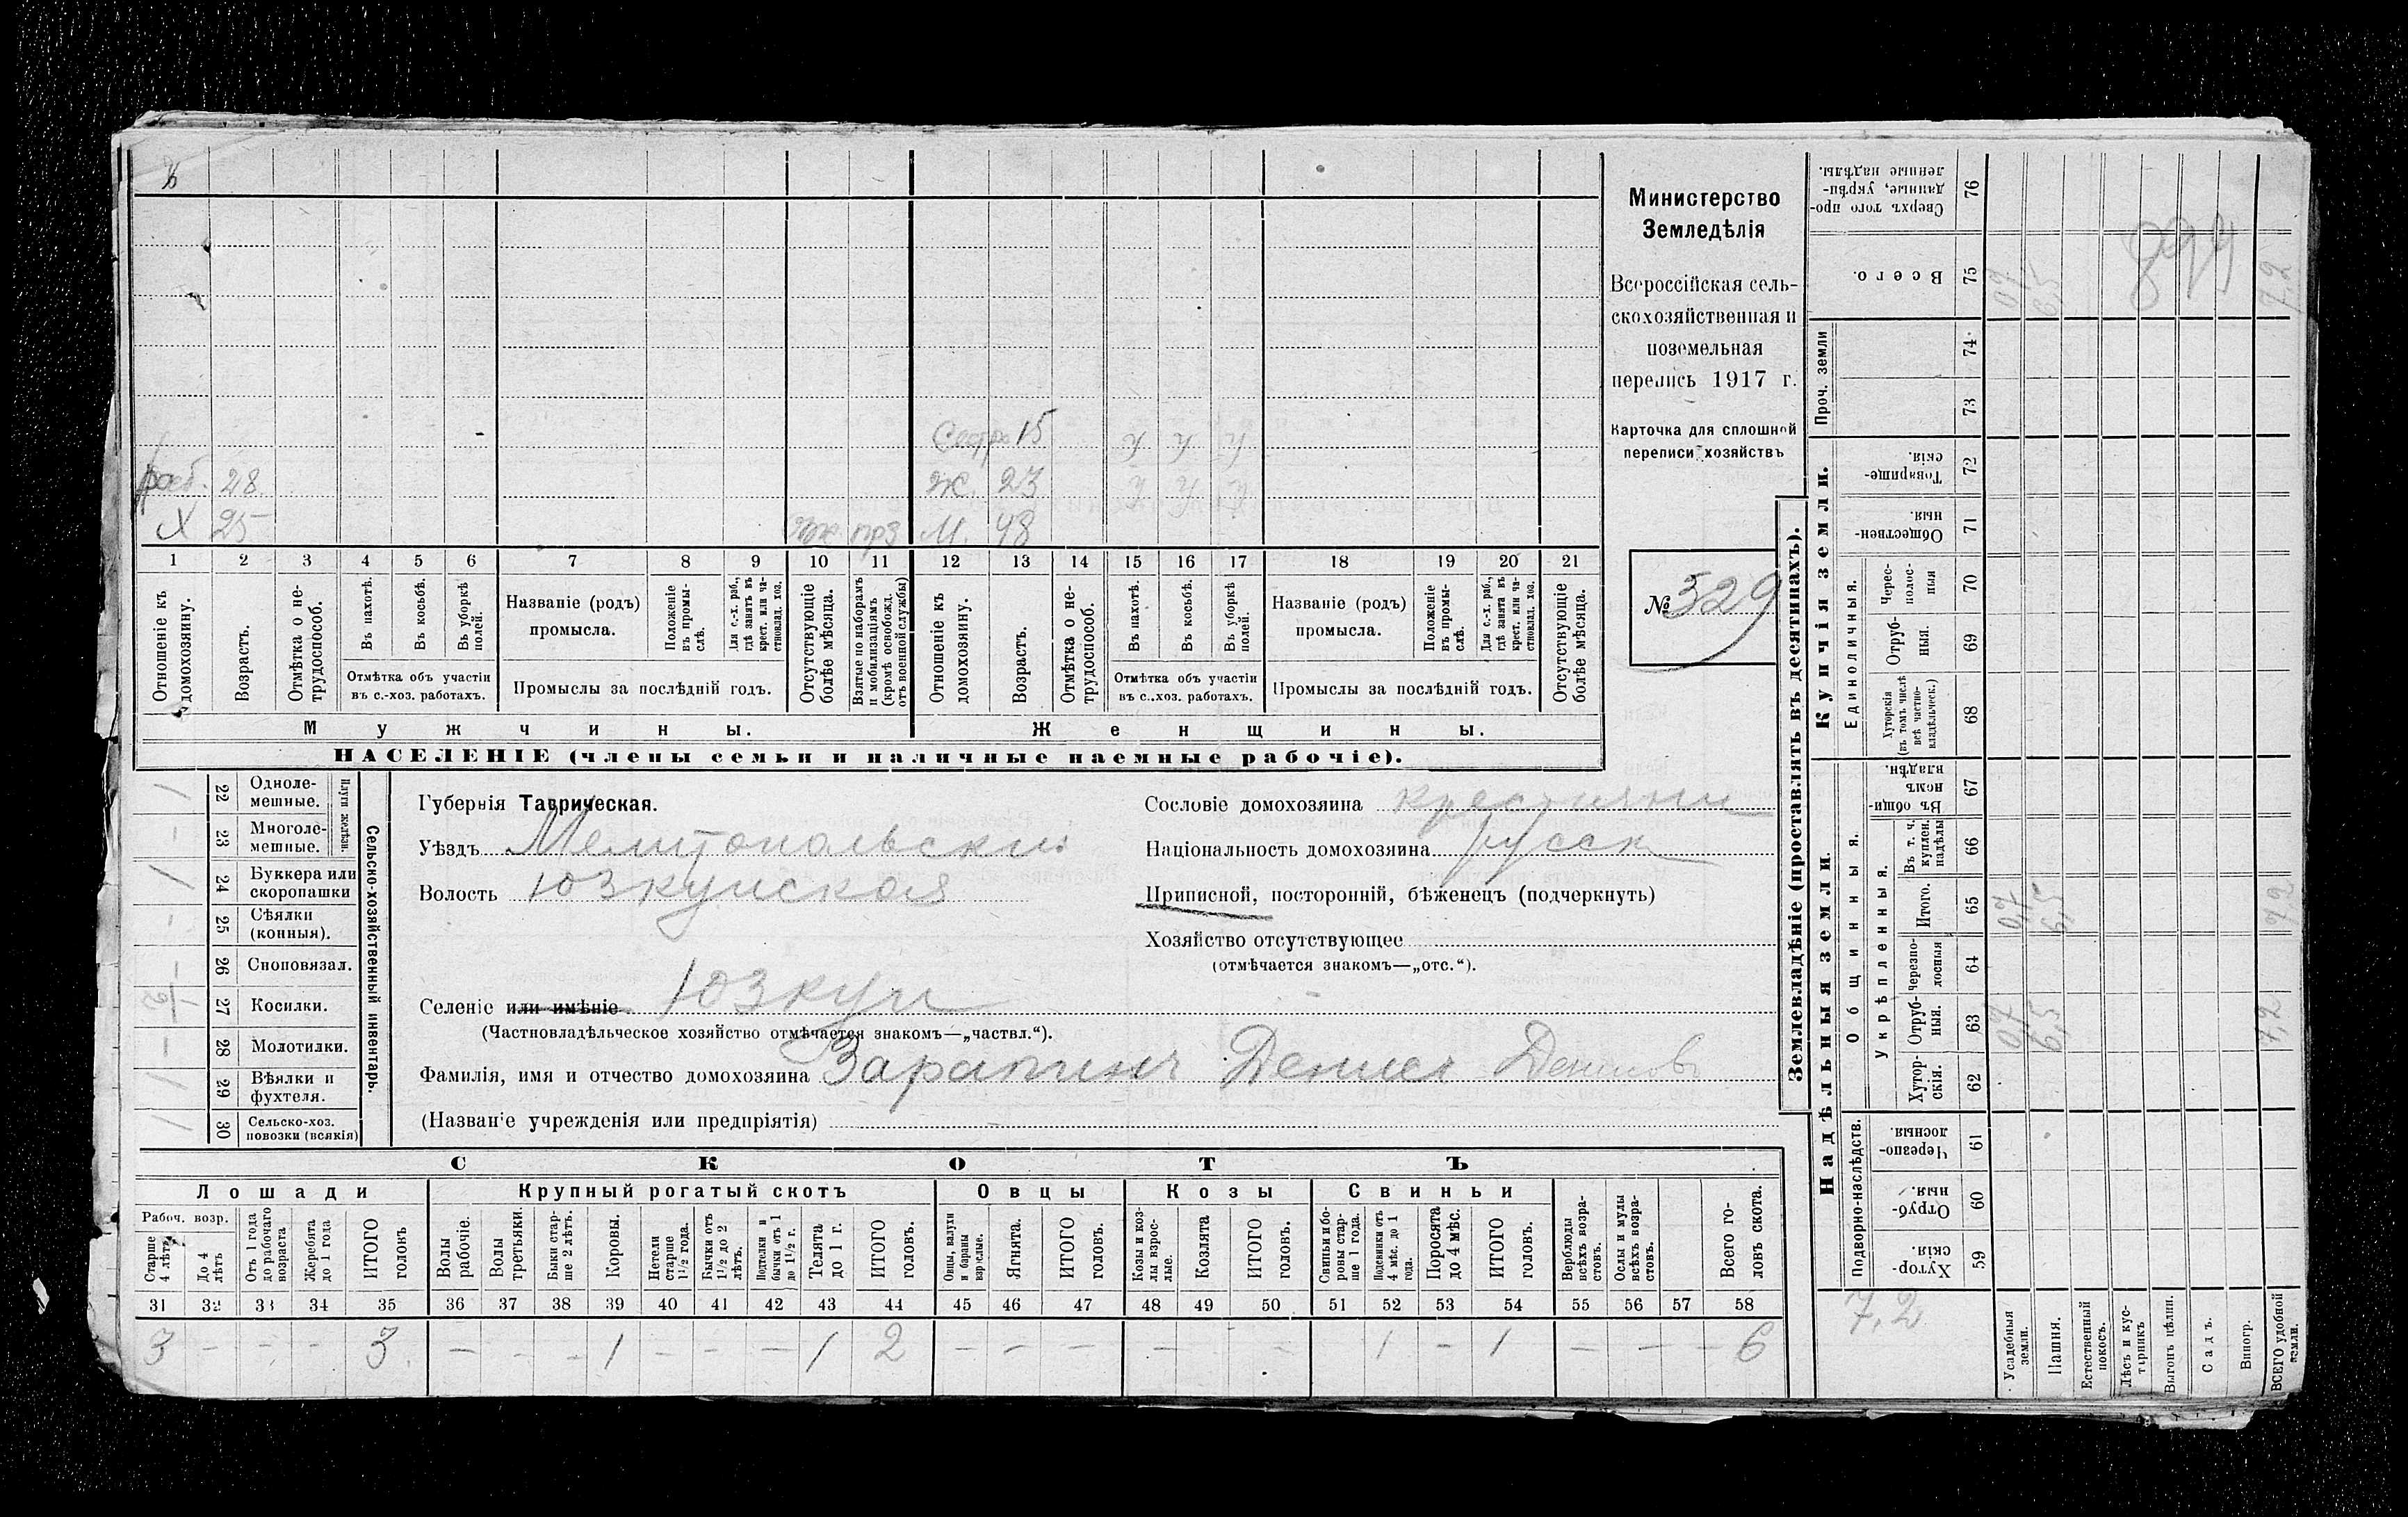 Министерство
Земледѣлія
Всероссійская сель-
скохозяйственная и
поземельная
перепись 1917 г.
Карточка для сплошной
переписи хозяйствъ
№ 329
Сестра 15 У У У
раб. 28 Ж. 23 У У У
Х 25 М. 48
1 2 3 4 5 6 7 8 9 10 11 12 13 14 15 16 17 18 19 20 21
Отношеніе къ домохозяину.
Возрастъ.
Отмѣтка о не-трудоспособ.
Въ пахотѣ.
Въ косьбѣ.
Въ уборкѣ полей.
Отмѣтка объ участіи
въ с.-хоз. работахъ.
Названіе (родъ)
промысла.
Положеніе въ промы-слѣ.
Для с.-х. раб., гдѣ занятъ въ крест. или ча-стновлад. хоз.
Промыслы за послѣдній годъ.
Отсутствующіе болѣе мѣсяца.
Взятые по наборамъ и мобилизаціямъ (кромѣ освобожд. отъ военной службы)
Отношеніе къ домохозяину.
Возрастъ.
Отмѣтка о не-трудоспособ.
Въ пахотѣ.
Въ косьбѣ.
Въ уборкѣ полей.
Отмѣтка объ участіи
въ с.-хоз. работахъ.
Названіе (родъ)
промысла.
Положеніе въ промы-слѣ.
Для с.-х. раб., гдѣ занята въ крест. или ча-стновлад. хоз.
Промыслы за послѣдній годъ.
Отсутствующіе болѣе мѣсяца.
Мужчины. Женщины.
НАСЕЛЕНІЕ (члены семьи и наличные наемные рабочіе).
Сельско-хозяйственный инвентарь.
Плуги желѣзн.
1 22 Одноле-мешные.
- 23 Многоле-мешные.
1 24 Буккера или скоропашки
- 25 Сѣялки (конныя).
- 26 Сноповязал.
27 Косилки.
- 28 Молотилки.
1 29 Вѣялки и фухтеля.
1 30 Сельско-хоз. повозки (всякія)
Губернія Таврическая.
Уѣздъ Мелитопольский
Волость Юзкуйская
Селеніе или имѣніе Юзкуи
(Частновладѣльческое хозяйство отмѣчается знакомъ—„частвл.“).
Фамилія, имя и отчество домохозяина Денис Денисовъ
(Названіе учрежденія или предпріятія)
Сословіе домохозяина крестянин
Національность домохозяина русск
Приписной, посторонній, бѣженецъ (подчеркнуть)
Хозяйство отсутствующее
(отмѣчается знакомъ—„отс.“).
СКОТЪ
Лошади Крупный рогатый скотъ Овцы Козы Свиньи
Рабоч. возр.
Старше 4 лѣтъ
До 4 лѣтъ
Отъ 1 года до рабочаго возраста
Жеребята до 1 года
ИТОГО головъ
Волы рабочіе.
Волы третьяки.
Быки стар-ше 2 лѣтъ.
Коровы.
Нетели старше 1½ года.
Бычки отъ 1½ до 2 лѣтъ.
Подтелки и бычки отъ 1 до 1½ г.
Телята до 1 г.
ИТОГО головъ.
Овцы, валухи и бараны взрослые.
Ягнята.
ИТОГО головъ.
Козы и коз-лы взрос-лые.
Козлята
ИТОГО головъ.
Свиньи и бо-ровы стар-ше 1 года.
Подсвинки отъ 4 мѣс. до 1 года.
Поросята до 4 мѣс.
ИТОГО головъ.
Верблюды всѣхъ возра-стовъ.
Ослы и мулы всѣхъ возра-стовъ.
Всего го-ловъ скота.
31 32 33 34 35 36 37 38 39 40 41 42 43 44 45 46 47 48 49 50 51 52 53 54 55 56 57 58
3 - - - 3 - - - 1 - - - 1 2 - - - - - - - 1 - 1 - - - 6
Землевладѣніе (проставлять въ десятинахъ).
Надѣльныя земли. Купчія земли.
Подворно-наслѣдств.
Общинныя.
Укрѣпленныя.
Единоличныя.
Проч. земли
Хутор-скія. 59
Отруб-ныя. 60
Черезпо-лосныя. 61
Хутор-скія. 62
Отруб-ныя. 63 0,7 6,5 7,2
черезпо-лосныя 64
Итого. 65 0,7 6,5 7,2
Въ т. ч. куплен. надѣлы 66
Въ общи-номъ владѣн. 67
Хуторскія (въ томъ числѣ всѣ частно-владѣльческ.) 68
Отруб-ныя. 69
Черес-полос-ныя 70
Обществен-ныя. 71
Товарище-скія. 72
73
74
Всего. 75 0,7 6,5 7,2
Сверхъ того про-данные, укрѣп-ленные надѣлы. 76
7,2
Усадебныя земли.
Пашня.
Естественный покосъ.
Лѣсъ и кус-тарникъ
Выгонъ цѣлин.
Садъ.
Виногр.
ВСЕГО удобной земли.